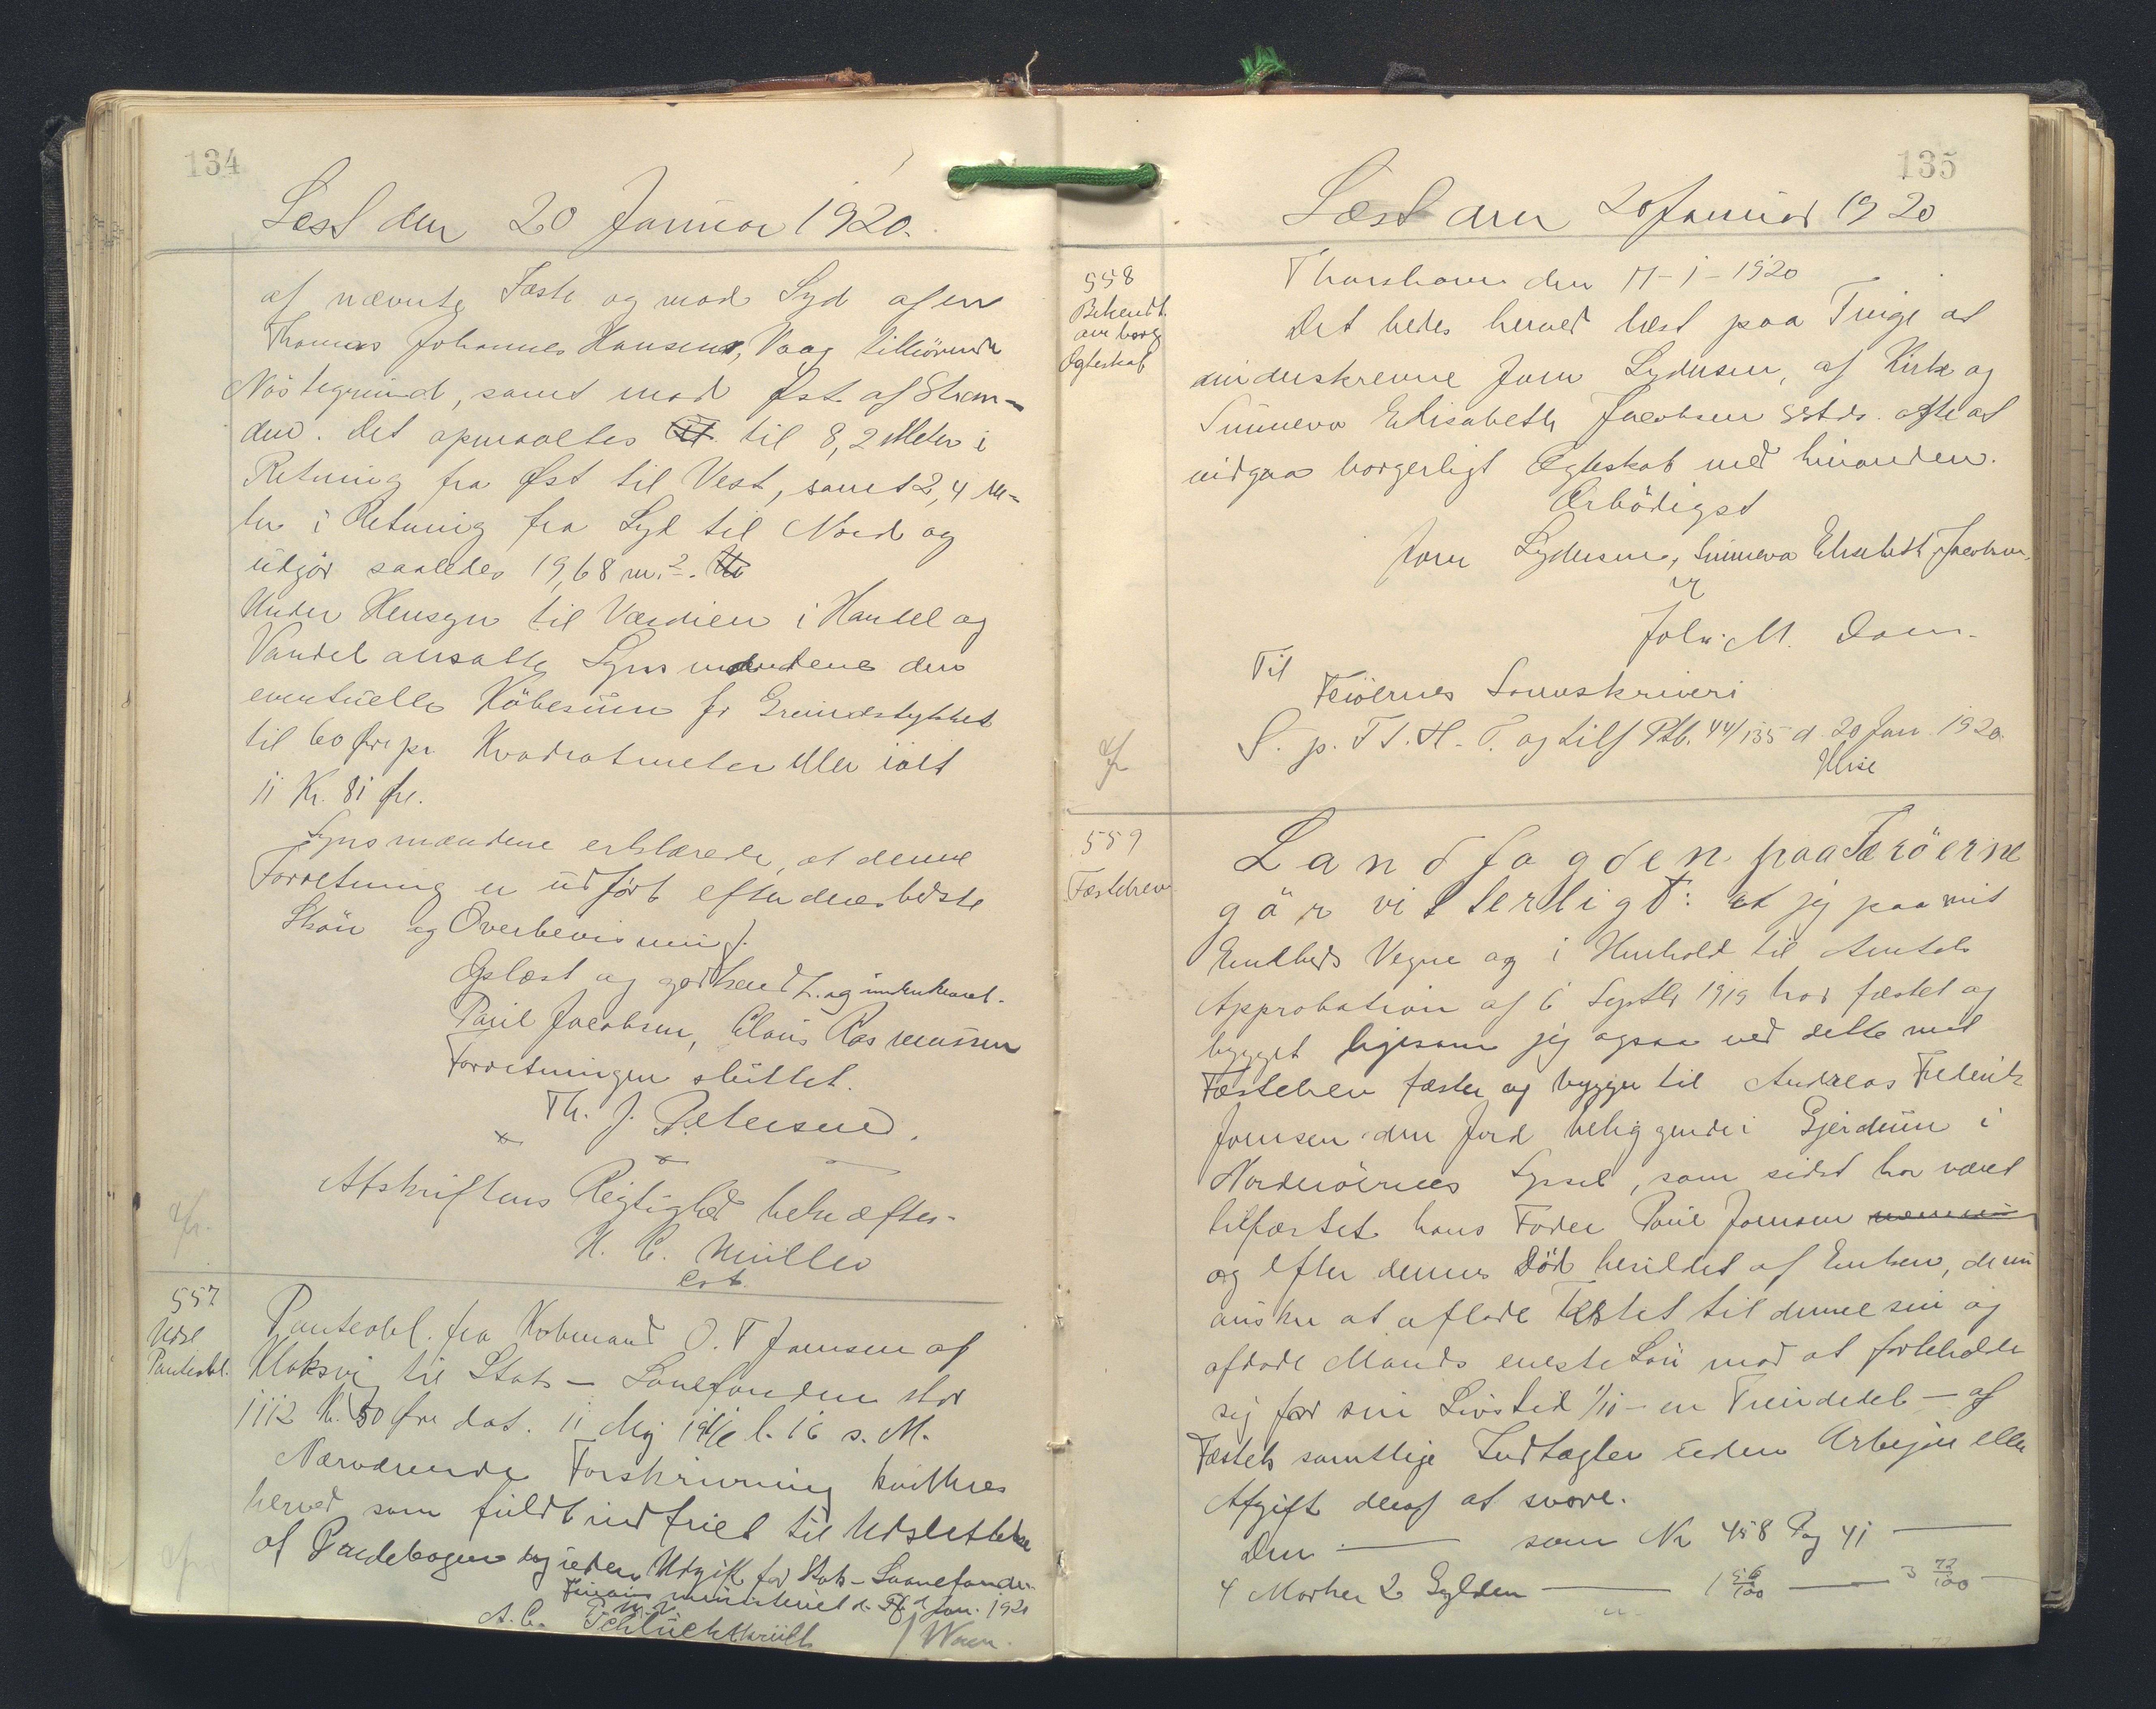 134
Læst den 20 Januar 1920.
af nævnte Fæste og mod Syd af en
Thomas Johannes Hansen, Vaag tilhørende
Nöstegrund, samt mod Øst af Stran-
den. Det opmaaltes til 8,2 Meter i
Retning fra Øst til Vest, samt 2,4 Me-
ter i Retning fra Syd til Nord og
udgjör saaledes 19,68 m.².
Under Hensyn til Værdien i Handel og
Vandel ansatte Synsmændene den
eventuelle Köbesum for Grundstykket
til 60 Øre pr. Kvadratmeter eller ialt
11 Kr. 81 Øre.
Synsmændene erklærede, at denne
Forretning er udført efter deres bedste
Skön og Overbevisning.
Oplæst og godkendt. og underskrevet.
Paul Jacobsen, Claus Rasmussen
Forretningen sluttet.
Th. J. Petersen.
Afskriftens Rigtighed bekræftes.
H. C. Müller
cst.
afr.
557
Udsl
Panteobl.
Panteobl. fra Kobmand O. F Joensen af
Klaksvig til Stats-Lånefonden stor
1112 Kr. 50 Øre dat. 11 Maj 1916 l. 16 s. M.
Nærværende Forskrivning kvitteres
herved som fuldt indfriet til Udslettelse
af Pantebogen dog uden Udgift for Stats-Laanefonden.
Finansministeriet d. Jan. 1920
P. M. V.
A. C.
afr
135
Læst den 20 Januar 1920
558
Bekendt.
om borg
Ægteskab
Thorshavn den 17-1-1920
Det bedes herved læst paa Tinge at
undertskrevne Joen Lydersen, af Kirke og
Sunneva Elisabeth Jacobsen sstds. agte at
indgaa borgerligt Ægteskab med hinanden.
Ærbödigst
Joen Lydersen, Sunneva Elisabeth Jacobsen.
v
Joh. M. Dam.
Til
Færöernes Sorenskriveri
L. p. F T. H. T. og tilf Ptb. 44/135 d. 20 Jan. 1920.
afr
559
Fæstebrev
Landfogden paa Færöerne
gör vitterligt: at jeg paa mit
Embeds Vegne og i Henhold til Amtets
Approbation af 6 Septbr 1919 har fæstet og
bygget ligesom jeg ogsaa ved dette mit
Fæstebrev fæster og bygger til Andreas Frederik
Joensen den Jord beliggende i Gjerdum i
Norderöernes Syssel, som sidst har været
tilfæstet hans Fader Paul Joensen
og efter dennes Död besiddet af Enken, der nu
önsker at aflade Fæstet til denne sin og
afdøde Mands eneste Sön mod at forbeholde
sig for sin Livstid 1/10 - en Tiendedel - af
Fæstets samtlige Indtægter uden Arbejde eller
Afgift deraf at svare.
Den — som Nr 458 Pag 41 —
4 Marker 2 Gylden — 1 56/100 — 3 72/100 —